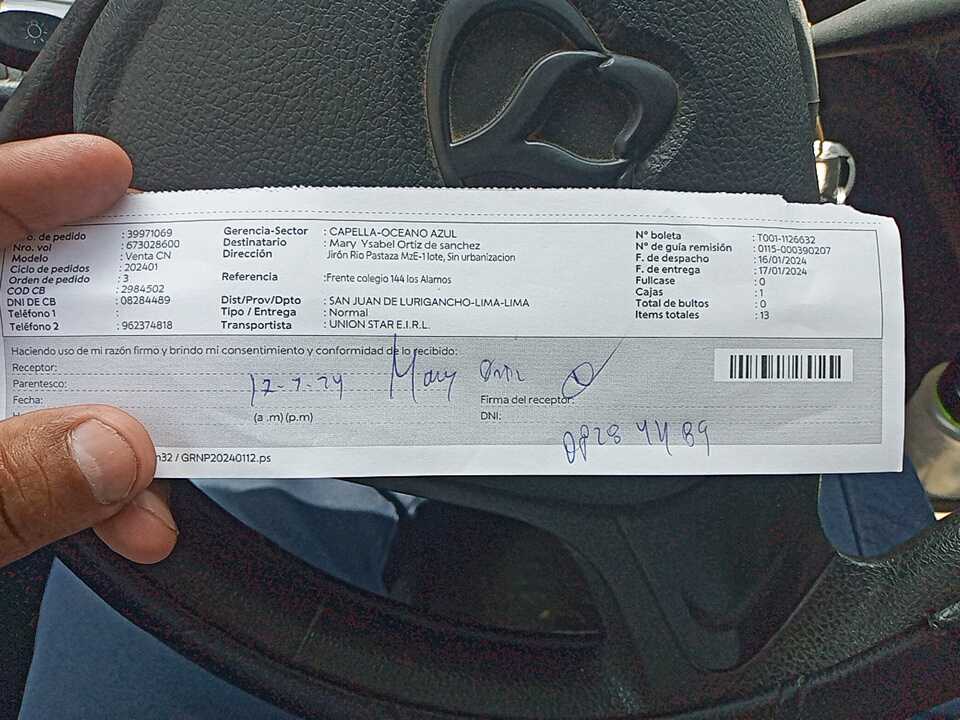 o. de pedido : 39971069
Nro. vol : 673028600
Modelo : Venta CN
Ciclo de pedidos : 202401
Orden de pedido : 3
COD CB : 2984502
DNI DE CB : 08284489
Teléfono 1 :
Teléfono 2 : 962374818
Gerencia-Sector : CAPELLA-OCEANO AZUL
Destinatario : Mary Ysabel Ortiz de sanchez
Dirección Jirón Rio Pastaza MzE-1 lote, Sin urbanizacion
Referencia :Frente colegio 144 los Alamos
Dist/Prov/Dpto : SAN JUAN DE LURIGANCHO-LIMA-LIMA
Tipo / Entrega : Normal
Transportista : UNION STAR E.I.R.L.
N° boleta : T001-1126632
N° de guía remisión : 0115-000390207
F. de despacho : 16/01/2024
F. de entrega : 17/01/2024
Fullcase : 0
Cajas : 1
Total de bultos : 0
Items totales : 13
Haciendo uso de mi razón firmo y brindo mi consentimiento y conformidad de lo recibido:
Receptor: Mary Ortiz
Parentesco:
Fecha: 17-1-24
Firma del receptor:
(a .m) (p.m)
DNI: 08284489
n32 / GRNP20240112.ps